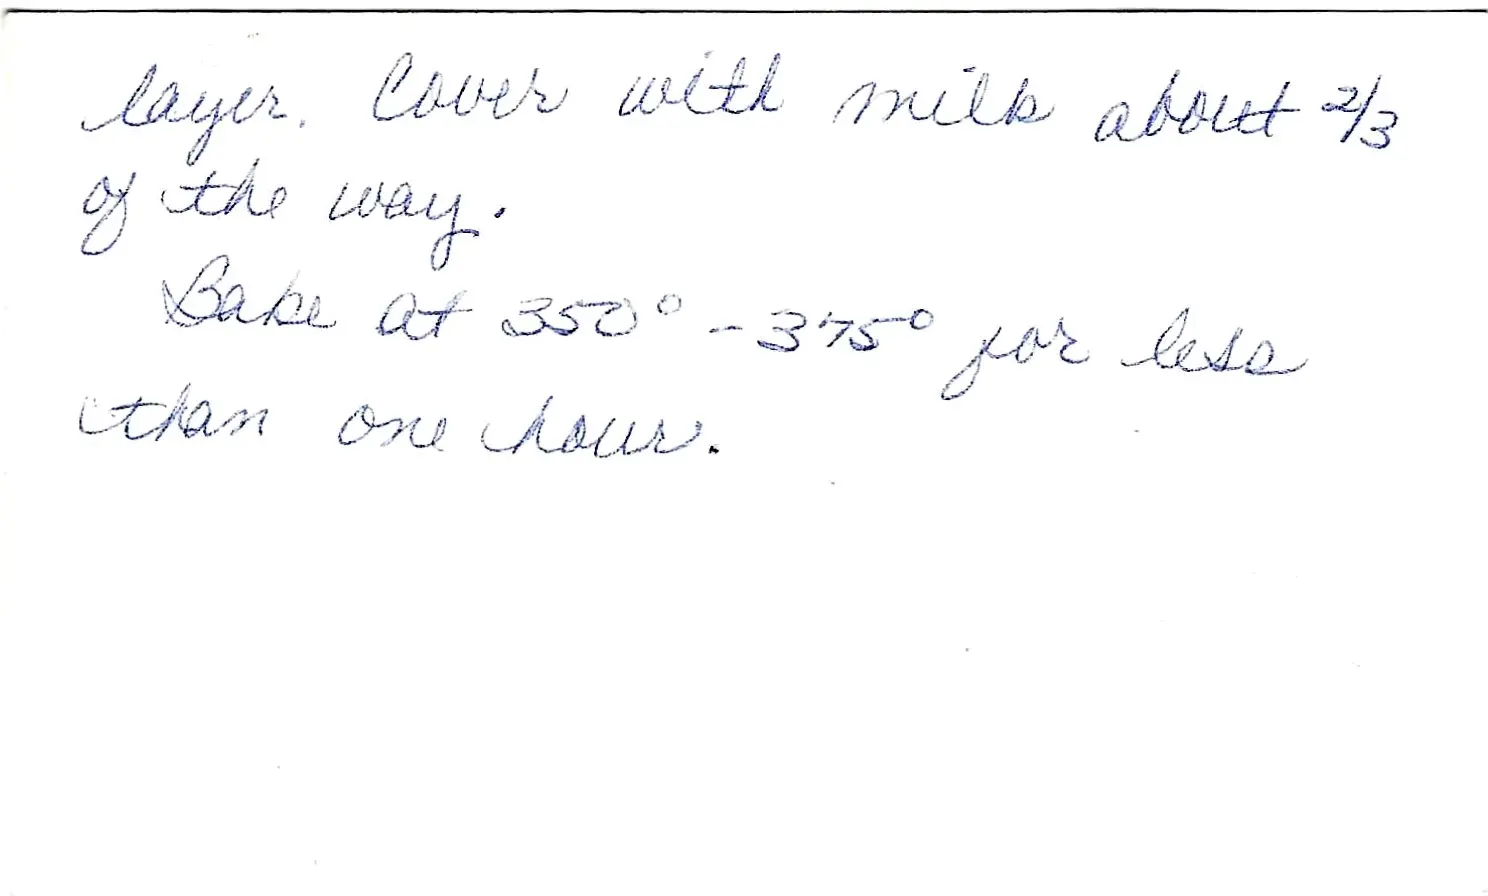 layer. Cover with milk about 2/3
of the way.
Bake at 350° - 375° for less
than one hour.